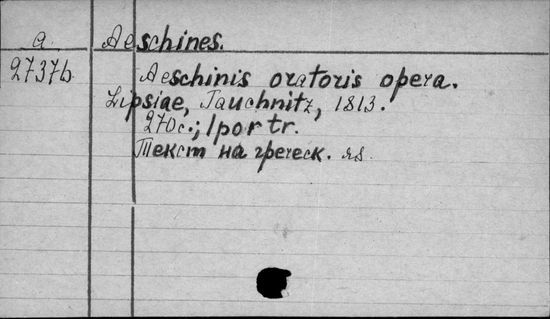 a
Aeschines.
27376
Aeschinis oratoris opera.
Lipsiae, Tauchnitz, 1813.
270c.; 1 portr.
Текст на греческ. яз.